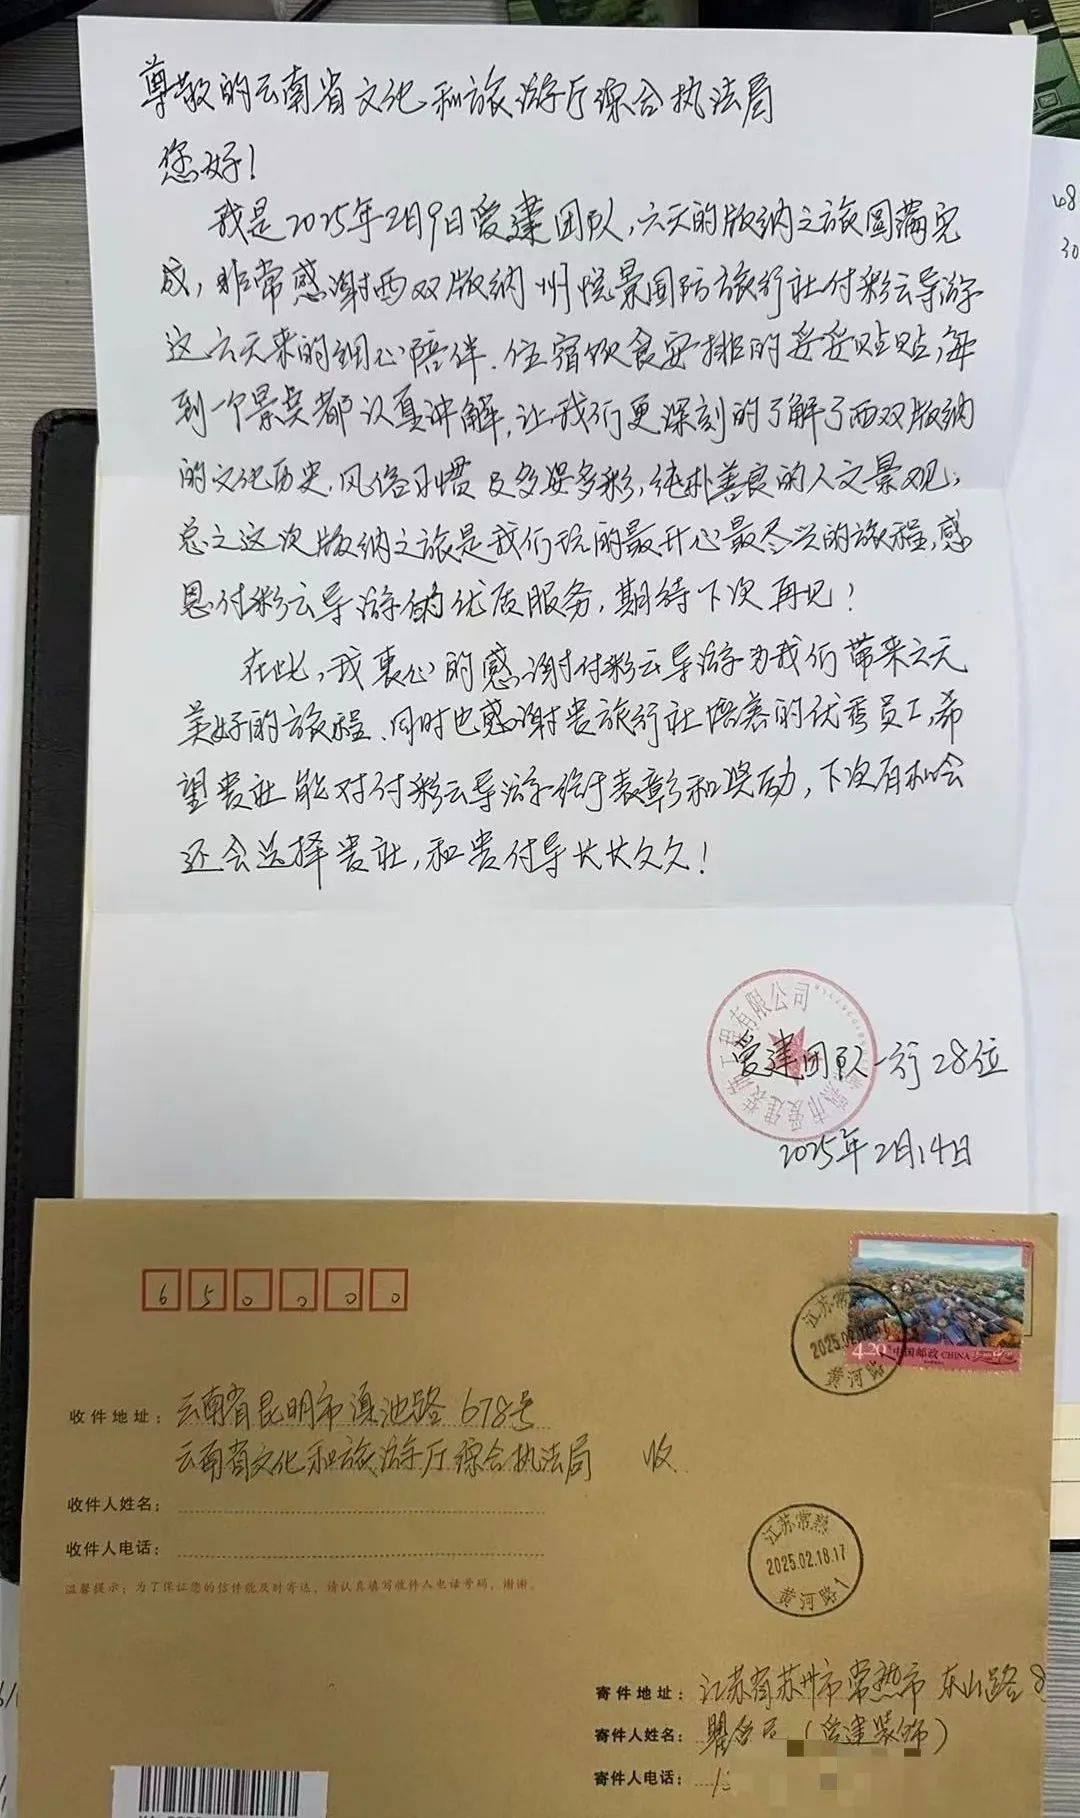 尊敬的云南省文化和旅游厅综合执法局
您好!
我是2025年2月9日爱建团队,六天的版纳之旅圆满完
成,非常感谢西双版纳州悦景国际旅行社付彩云导游
这六天来的细心陪伴.住宿饮食安排的妥妥贴贴,每
到一个景点都认真讲解,让我们更深刻的了解了西双版纳
的文化历史.风俗习惯及多姿多彩,纯朴善良的人文景观,
总之这次版纳之旅是我们玩的最开心最尽兴的旅程,感
恩付彩云导游的优质服务,期待下次再见!
在此,我衷心的感谢付彩云导游为我们带来六天
美好的旅程、同时也感谢贵旅行社培养的优秀员工,希
望贵社能对付彩云导游给于表彰和奖励,下次有机会
还会选择贵社,和贵付导长长久久!
常熟市爱建装饰工程有限公司
爱建团队一行28位
2025年2月14日
650000
江苏常熟
2025.02.18.17
黄河路1
4.20元 中国邮政 CHINA
收件地址:云南省昆明市滇池路678号
云南省文化和旅游厅综合执法局 收
收件人姓名:
收件人电话:
温馨提示:为了保证您的信件能及时寄达,请认真填写收件人电话号码,谢谢。
江苏常熟
2025.02.18.17
黄河路1
寄件地址:江苏省苏州市常熟市东山路8
寄件人姓名:(爱建装饰)
寄件人电话:1
48
30